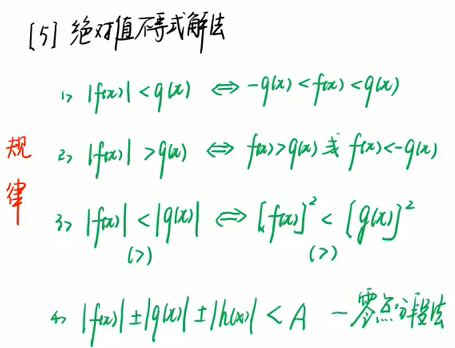 [5] 绝对值不等式解法
1> |f(x)| < g(x) ⇔ -g(x) < f(x) < g(x)
规律
2> |f(x)| > g(x) ⇔ f(x) > g(x) 或 f(x) < -g(x)
3> |f(x)| < |g(x)| ⇔ [f(x)]² < [g(x)]²
(>) (>)
4> |f(x)| ± |g(x)| ± |h(x)| < A — 零点分段法